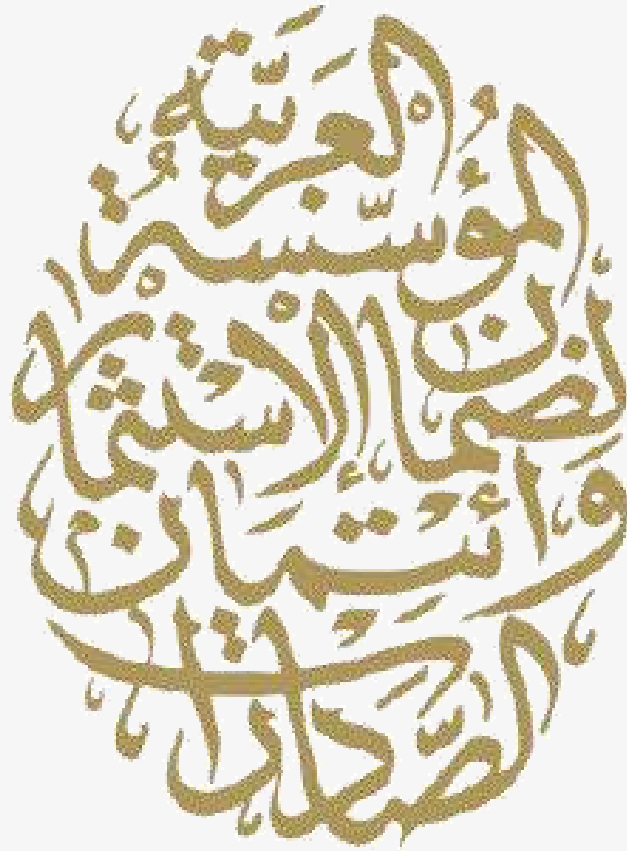 المؤسّسةُ العربيّة
لضمان الاستثمار
وائتمان
الصّادرات